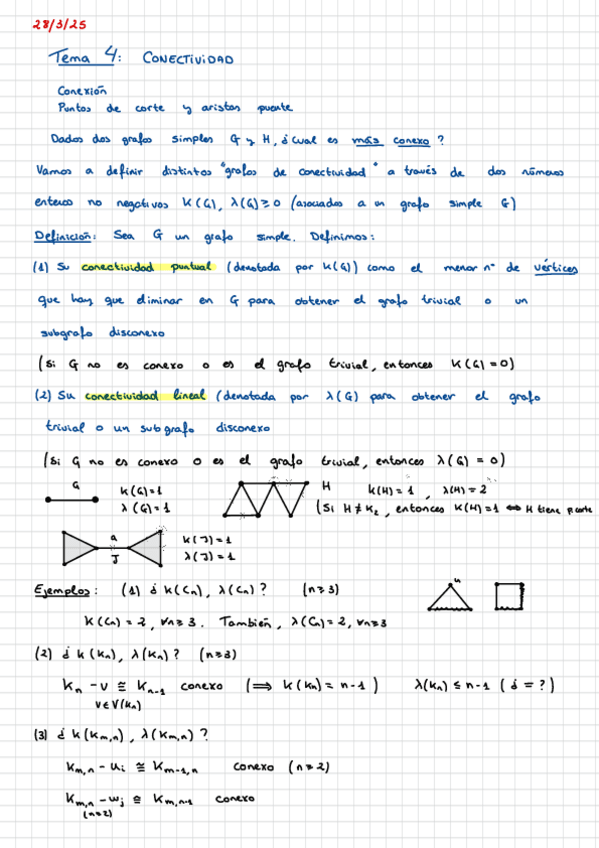 28/3/25
Tema 4: CONECTIVIDAD
Conexión
Puntos de corte y aristas puente
Dados dos grafos simples G y H, ¿cual es más conexo?
Vamos a definir distintos "grafos de conectividad" a través de dos números
enteros no negativos K(G), λ(G) ≥ 0 (asociados a un grafo simple G)
Definición: Sea G un grafo simple. Definimos:
(1) Su conectividad puntual (denotada por K(G)) como el menor nº de vértices
que hay que eliminar en G para obtener el grafo trivial o un
subgrafo disconexo
(Si G no es conexo o es el grafo trivial, entonces K(G)=0)
(2) Su conectividad lineal (denotada por λ(G) para obtener el grafo
trivial o un subgrafo disconexo
(Si G no es conexo o es el grafo trivial, entonces λ(G) = 0)
G
K(G)=1
λ(G)=1
H
K(H)=1, λ(H)=2
(Si H≠K₂, entonces K(H)=1 ⟺ H tiene p.corte
a
J
K(J)=1
λ(J)=1
Ejemplos: (1) ¿K(Cₙ), λ(Cₙ)? (n≥3)
K(Cₙ) = 2, ∀n≥3. También, λ(Cₙ)=2, ∀n≥3
(2) ¿K(Kₙ), λ(Kₙ)? (n≥3)
Kₙ - v ≅ Kₙ₋₁ conexo (⟹ K(Kₙ)=n-1) λ(Kₙ) ≤ n-1 (¿=?)
v∈V(Kₙ)
(3) ¿K(Kₘ,ₙ), λ(Kₘ,ₙ)?
Kₘ,ₙ - uᵢ ≅ Kₘ₋₁,ₙ conexo (n≥2)
Kₘ,ₙ - wⱼ ≅ Kₘ,ₙ₋₁ conexo
(n≥2)